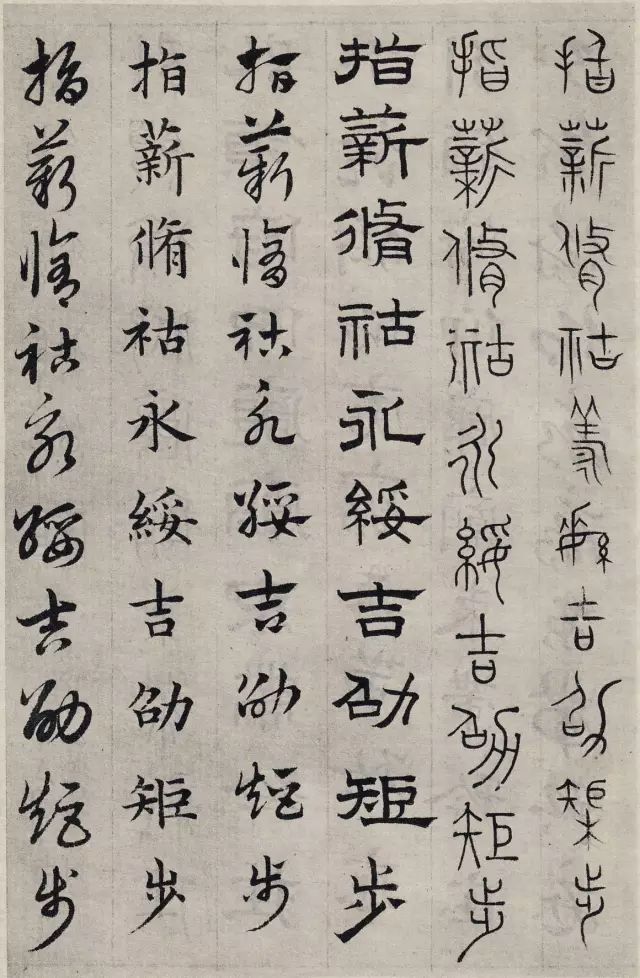 指薪脩祜永綏吉劭矩步
指薪脩祜永綏吉劭矩步
指薪脩祜永綏吉劭矩步
指薪脩祜永綏吉劭矩步
指薪脩祜永綏吉劭矩步
指薪脩祜永綏吉劭矩步